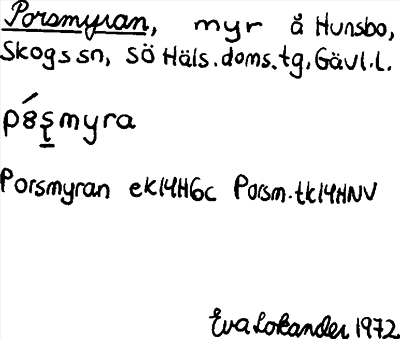 Porsmyran, myr å Hunsbo,
Skogs sn, SÖ Häls. doms.tg, Gävl.l.
pó̱8ʂmyra
Porsmyran ek14H6c Porsm. tk14HNV
Eva Lokander 1972